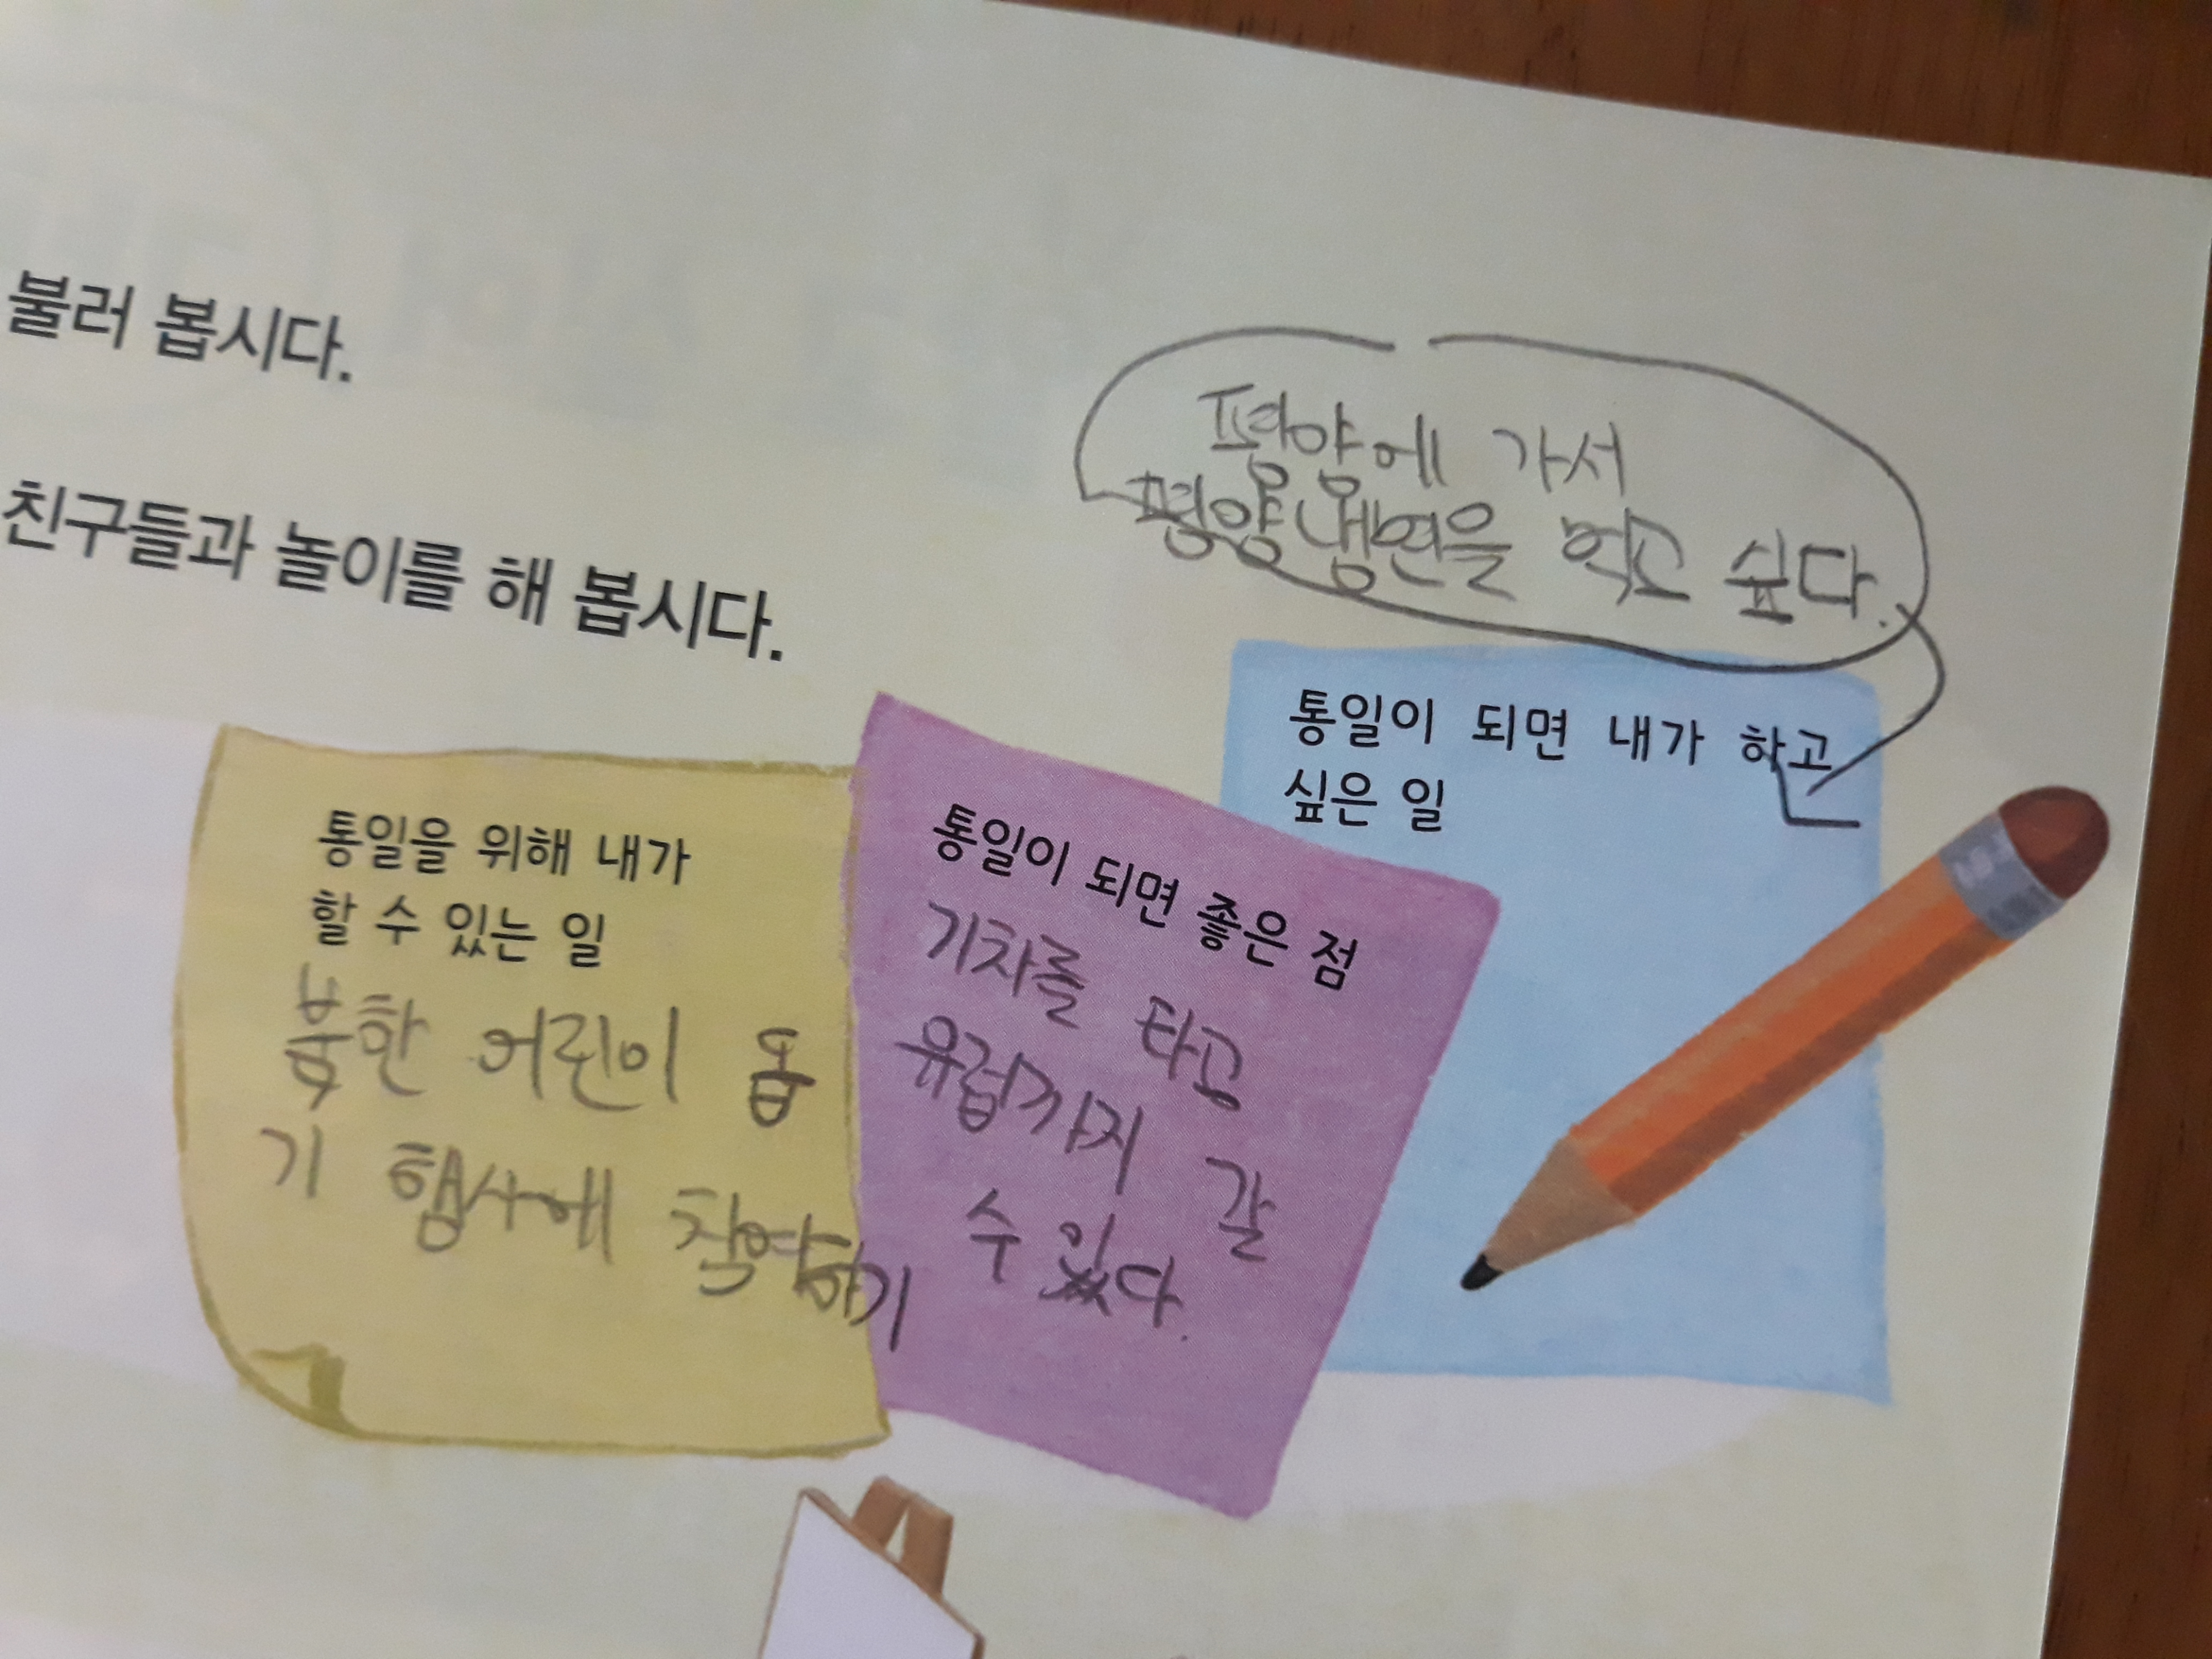 불러 봅시다.
친구들과 놀이를 해 봅시다.
평양에 가서
평양냉면을 먹고 싶다.
통일을 위해 내가
할 수 있는 일
북한 어린이 돕
기 행사에 참여하기
통일이 되면 좋은 점
기차를 타고
유럽까지 갈
수 있다.
통일이 되면 내가 하고
싶은 일